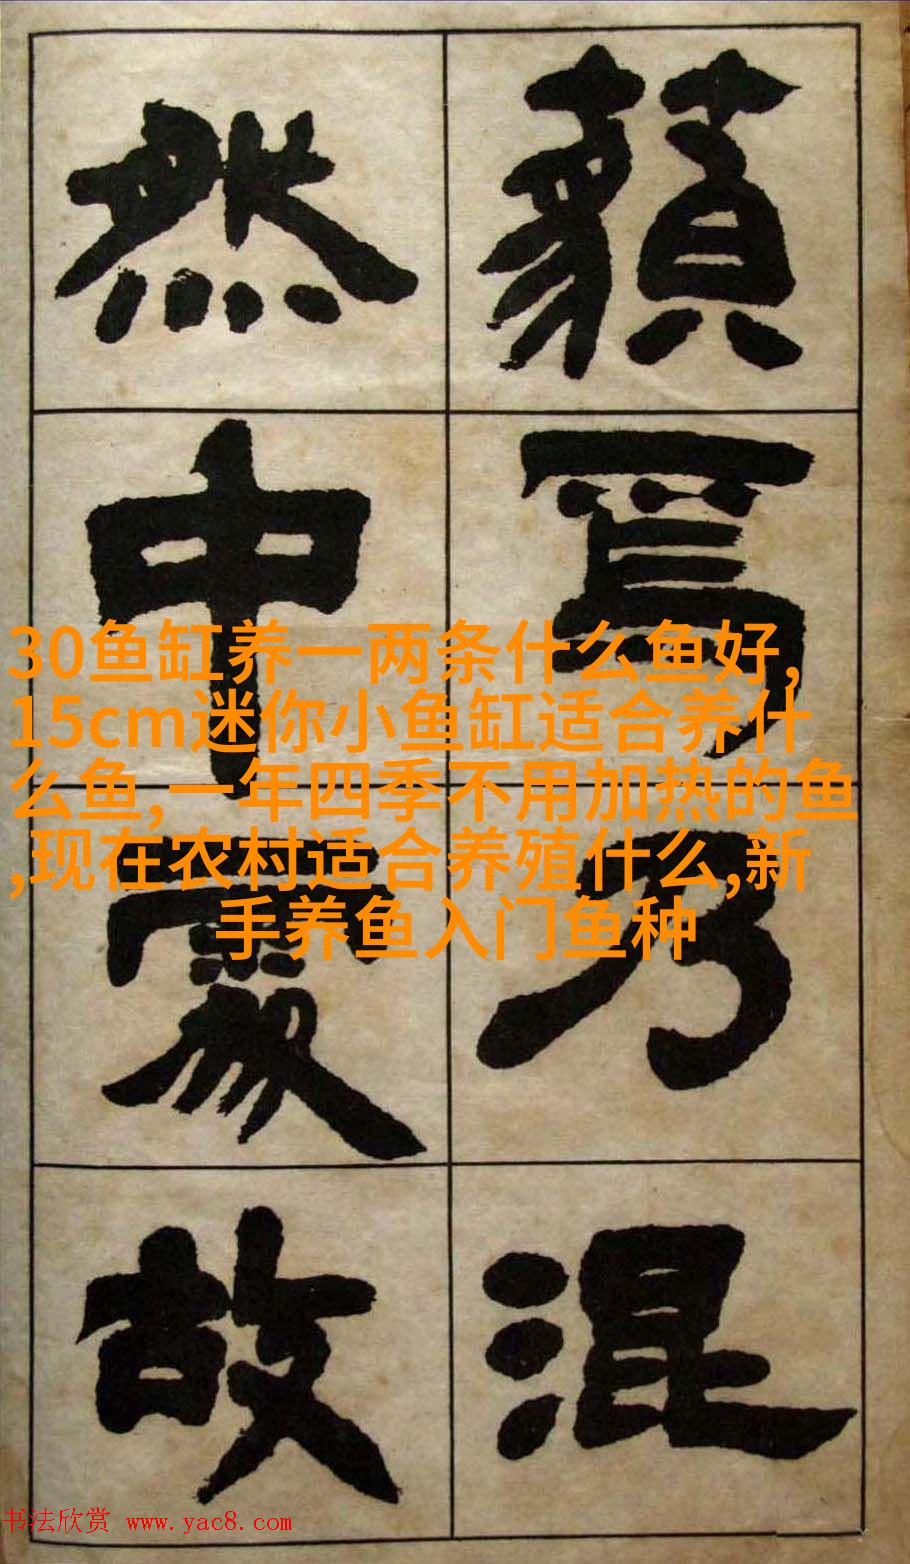 藐焉乃混
然中處故
30鱼缸养一两条什么鱼好,
15cm迷你小鱼缸适合养什
么鱼,一年四季不用加热的鱼
,现在农村适合养殖什么,新
手养鱼入门鱼种
书法欣赏 www.yac8.com